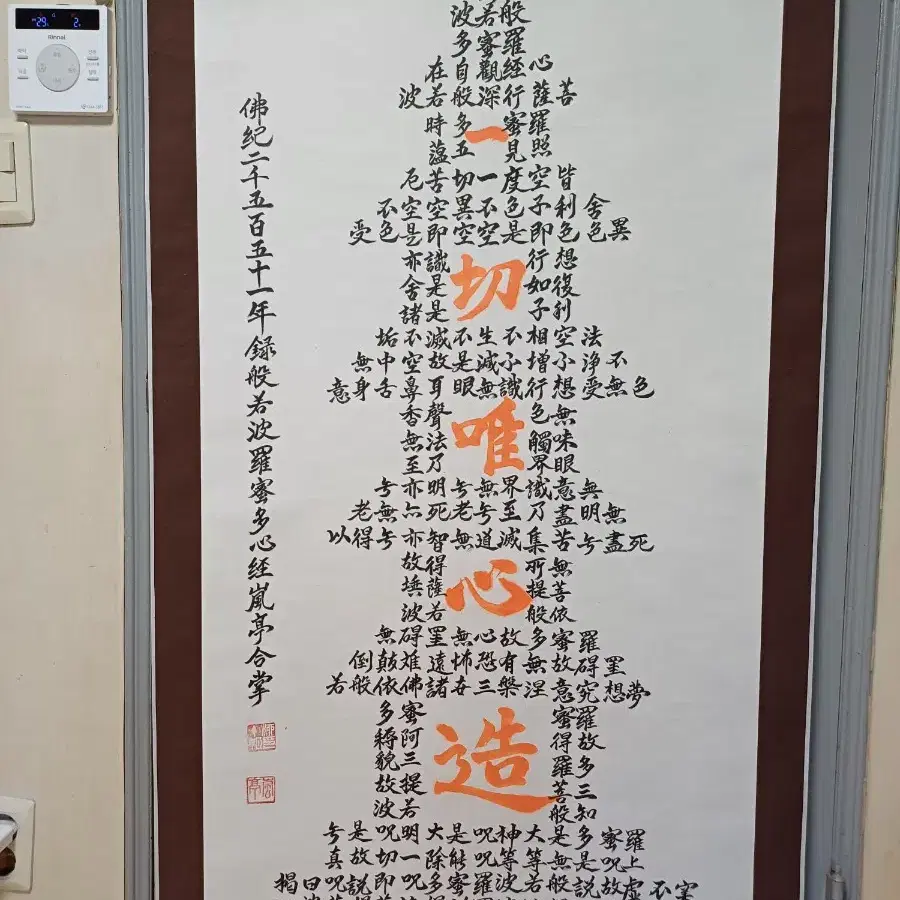 波若般
多蜜羅
在自觀經心
波若般深行薩菩
時多蜜羅
蘊五見照
厄苦切一度空皆
不空空異不色子利舍
受色是即空空是即色色異
亦識行想
舍是如復
諸是子利
垢不滅不生不相空法
無中空故是滅不增不淨不
意身舌鼻耳眼無識行想受無色
香聲色無
無法觸味
至乃界眼
无亦明无無界識意無
老無亦死老无至乃盡明無
以得无亦智無道滅集苦无盡死
故得所無
埵薩提菩
波若般依
無碍罣無心故多蜜羅
倒顛離遠怖恐有無故碍罣
若般依佛諸世三槃涅意究想夢
多蜜蜜羅
耨阿得故
貌三羅多
故提菩三
波若般知
无是呪明大是呪神大是多蜜羅
真故切一除能呪等等無是呪上
一切唯心造
佛紀二千五百五十一年録般若波羅蜜多心経嵐亭合掌
Rinnai